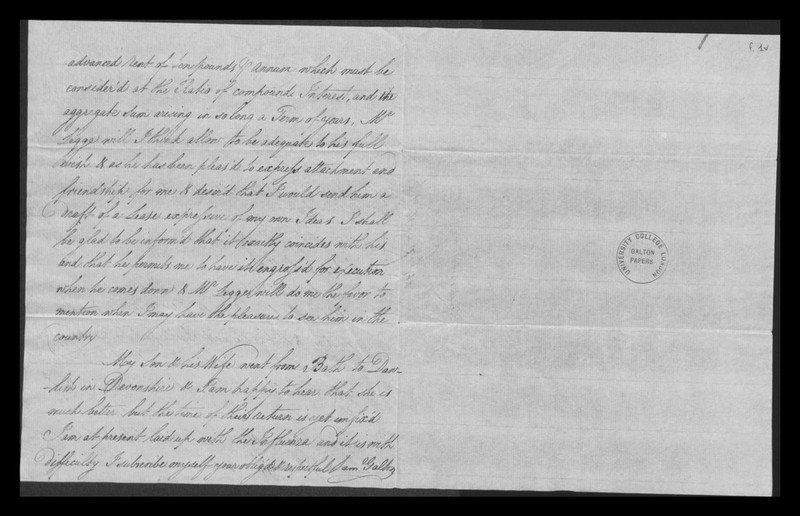 f. 1v
advanced Rent of ten pounds P annum which must be
consider'd at the Ratio of compound Interest, and the
aggregate Sum arising in so long a Term of years, Mr
Legge will I think allow to be adequate to his full
wish & as he has been pleas'd to express attachment and
friendship for me & desir'd that I would send him a
Draft of a Lease expressive of my own Ideas I shall
be glad to be inform'd that it exactly coincides with his
and that he permits me to have it engross'd for execution
when he comes down & Mr Legge will do me the favor to
mention when I may have the pleasure to see him in the
country
My Son & his Wife went from Bath to Daw-
-lish in Devonshire & I am happy to hear that she is
much better but the time of their return is yet unfix'd
I am at present laid up with the Influenza and it is with
difficulty I subscribe myself your oblig'd & respectful Saml Galton
UNIVERSITY COLLEGE LONDON
GALTON
PAPERS